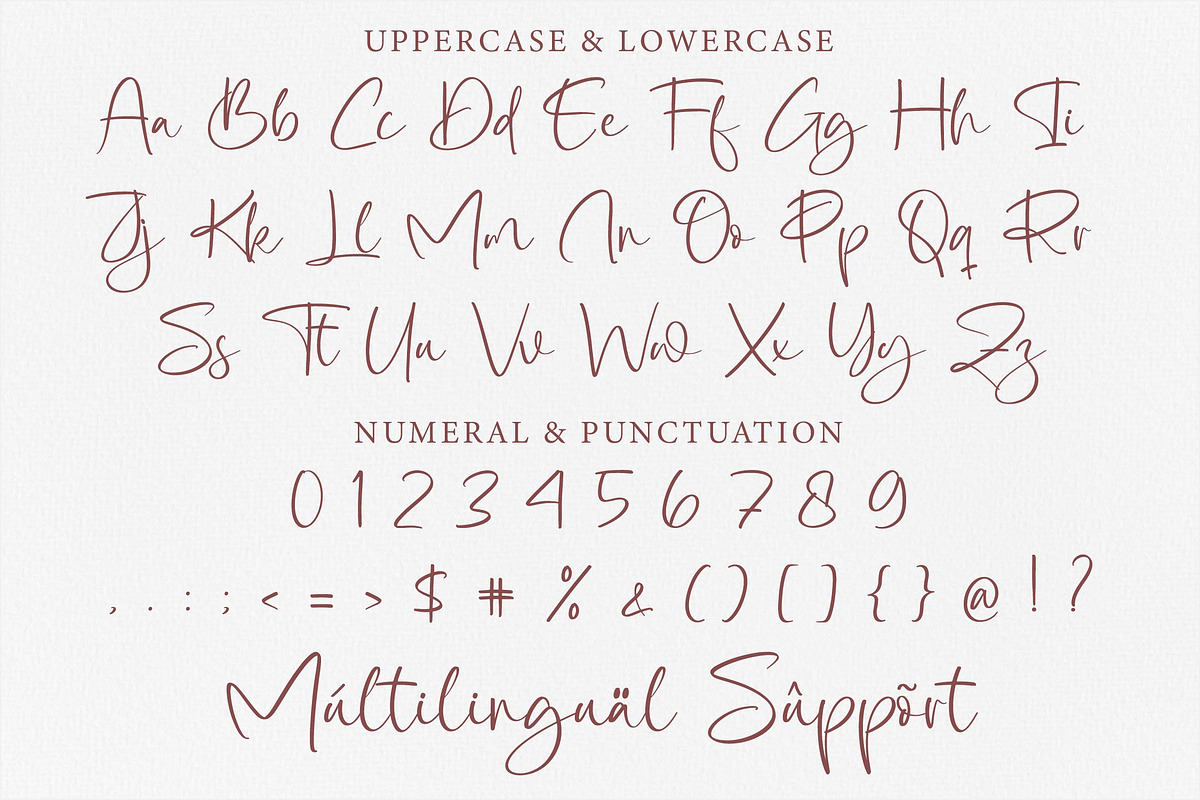 UPPERCASE & LOWERCASE
Aa Bb Cc Dd Ee Ff Gg Hh Ii
Jj Kk Ll Mm Nn Oo Pp Qq Rr
Ss Tt Uu Vv Ww Xx Yy Zz
NUMERAL & PUNCTUATION
0 1 2 3 4 5 6 7 8 9
, . : ; < = > $ # % & ( ) [ ] { } @ ! ?
Múltilinguäl Sûppõrt